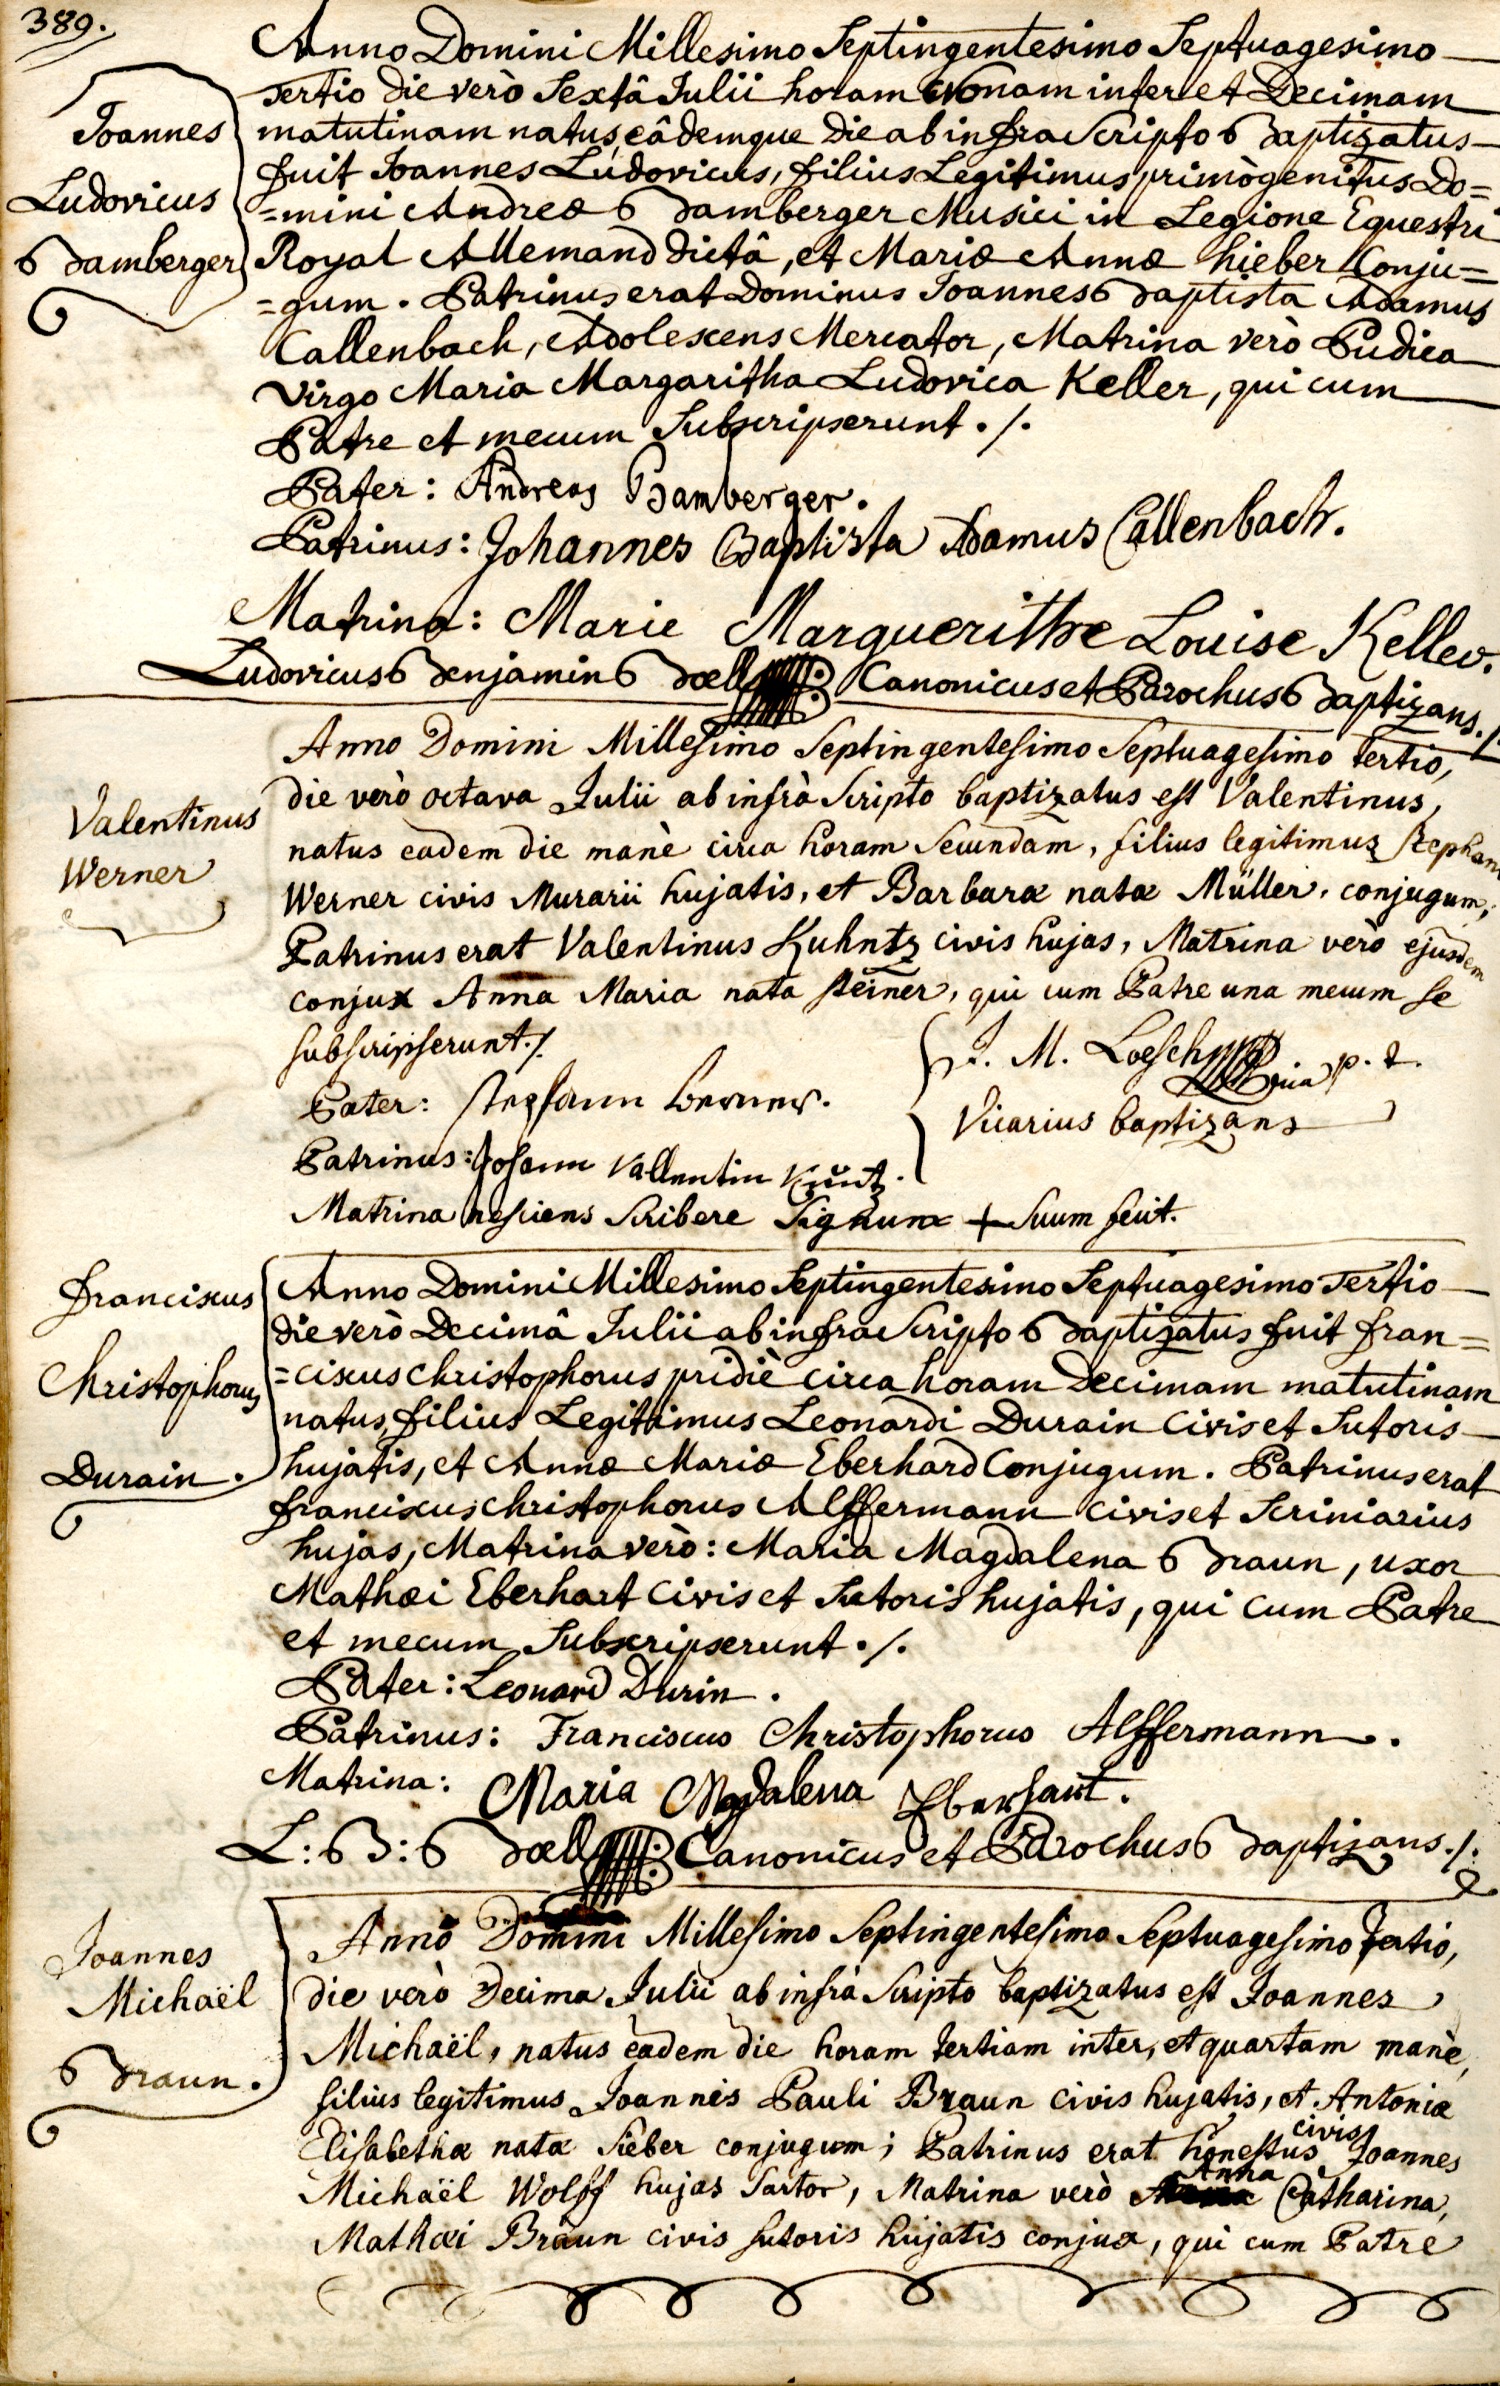 389.
Joannes
Ludovicus
Bamberger
Anno Domini Millesimo Septingentesimo Septuagesimo
Tertio die verò Sextâ Julii horam Nonam inter et Decimam
matutinam natus, eâdemque die ab infra Scripto Baptizatus
fuit Joannes Ludovicus, filius Legitimus primògenitus Do=
=mini Andreæ Bamberger Musici in Legione Equestri
Royal Allemand dictâ, et Mariæ Annæ hieber Conju=
=gum. Patrinus erat Dominus Joannes Baptista Adamus
Callenbach, Adolescens Mercator, Matrina verò Pudica
Virgo Maria Margaritha Ludovica Keller, qui cum
Patre et mecum Subscripserunt ./.
Pater: Andreas Bamberger.
Patrinus: Johannes Baptista Adamus Callenbach.
Matrina: Marie Marguerithe Louise Keller.
Ludovicus Benjamin Boell Canonicus et Parochus Baptizans./.
Valentinus
Werner
Anno Domini Millesimo Septingentesimo Septuagesimo tertio,
die verò octava Julii ab infrà Scripto baptizatus est Valentinus,
natus eadem die manè circa horam Secundam, filius legitimus Stephani
Werner civis Murarii hujatis, et Barbaræ natæ Müller, conjugum,
Patrinus erat Valentinus Kuhntz civis hujas, Matrina verò ejusdem
conjux Anna Maria nata Steiner, qui cum Patre una mecum se
subscripserunt./.
J. M. Loesch p. t.
Vicarius baptizans
Pater: Stephann Werner.
Patrinus: Johann Vallentin Kuntz.
Matrina nesciens Scribere Signum + Suum fecit.
Franciscus
Christophorus
Durain.
Anno Domini Millesimo Septingentesimo Septuagesimo Tertio
die verò Decimâ Julii ab infra Scripto Baptizatus fuit Fran=
=ciscus Christophorus pridiè circa horam Decimam matutinam
natus, filius Legitimus Leonardi Durain Civis et Sutoris
hujatis, et Annæ Mariæ Eberhard Conjugum. Patrinus erat
Franciscus Christophorus Alffermann Civis et Scriniarius
hujas, Matrina verò: Maria Magdalena Braun, uxor
Mathæi Eberhart Civis et Sutoris hujatis, qui cum Patre
et mecum Subscripserunt ./.
Pater: Leonard Durin.
Patrinus: Franciscus Christophorus Alffermann.
Matrina: Maria Magdalena Eberhart.
L: B: Boell Canonicus et Parochus Baptizans./.
Joannes
Michaël
Braun.
Anno Domini Millesimo Septingentesimo Septuagesimo Tertio,
die verò Decima Julii ab infrà Scripto baptizatus est Joannes
Michaël, natus eadem die horam tertiam inter, et quartam manè,
filius legitimus Joannis Pauli Braun civis hujatis, et Antoniæ
Elisabethæ natæ Sieber conjugum; Patrinus erat honestus civis Joannes
Michaël Wolff hujas Sartor, Matrina verò Anna Catharina,
Mathæi Braun civis sutoris hujatis conjux, qui cum Patre